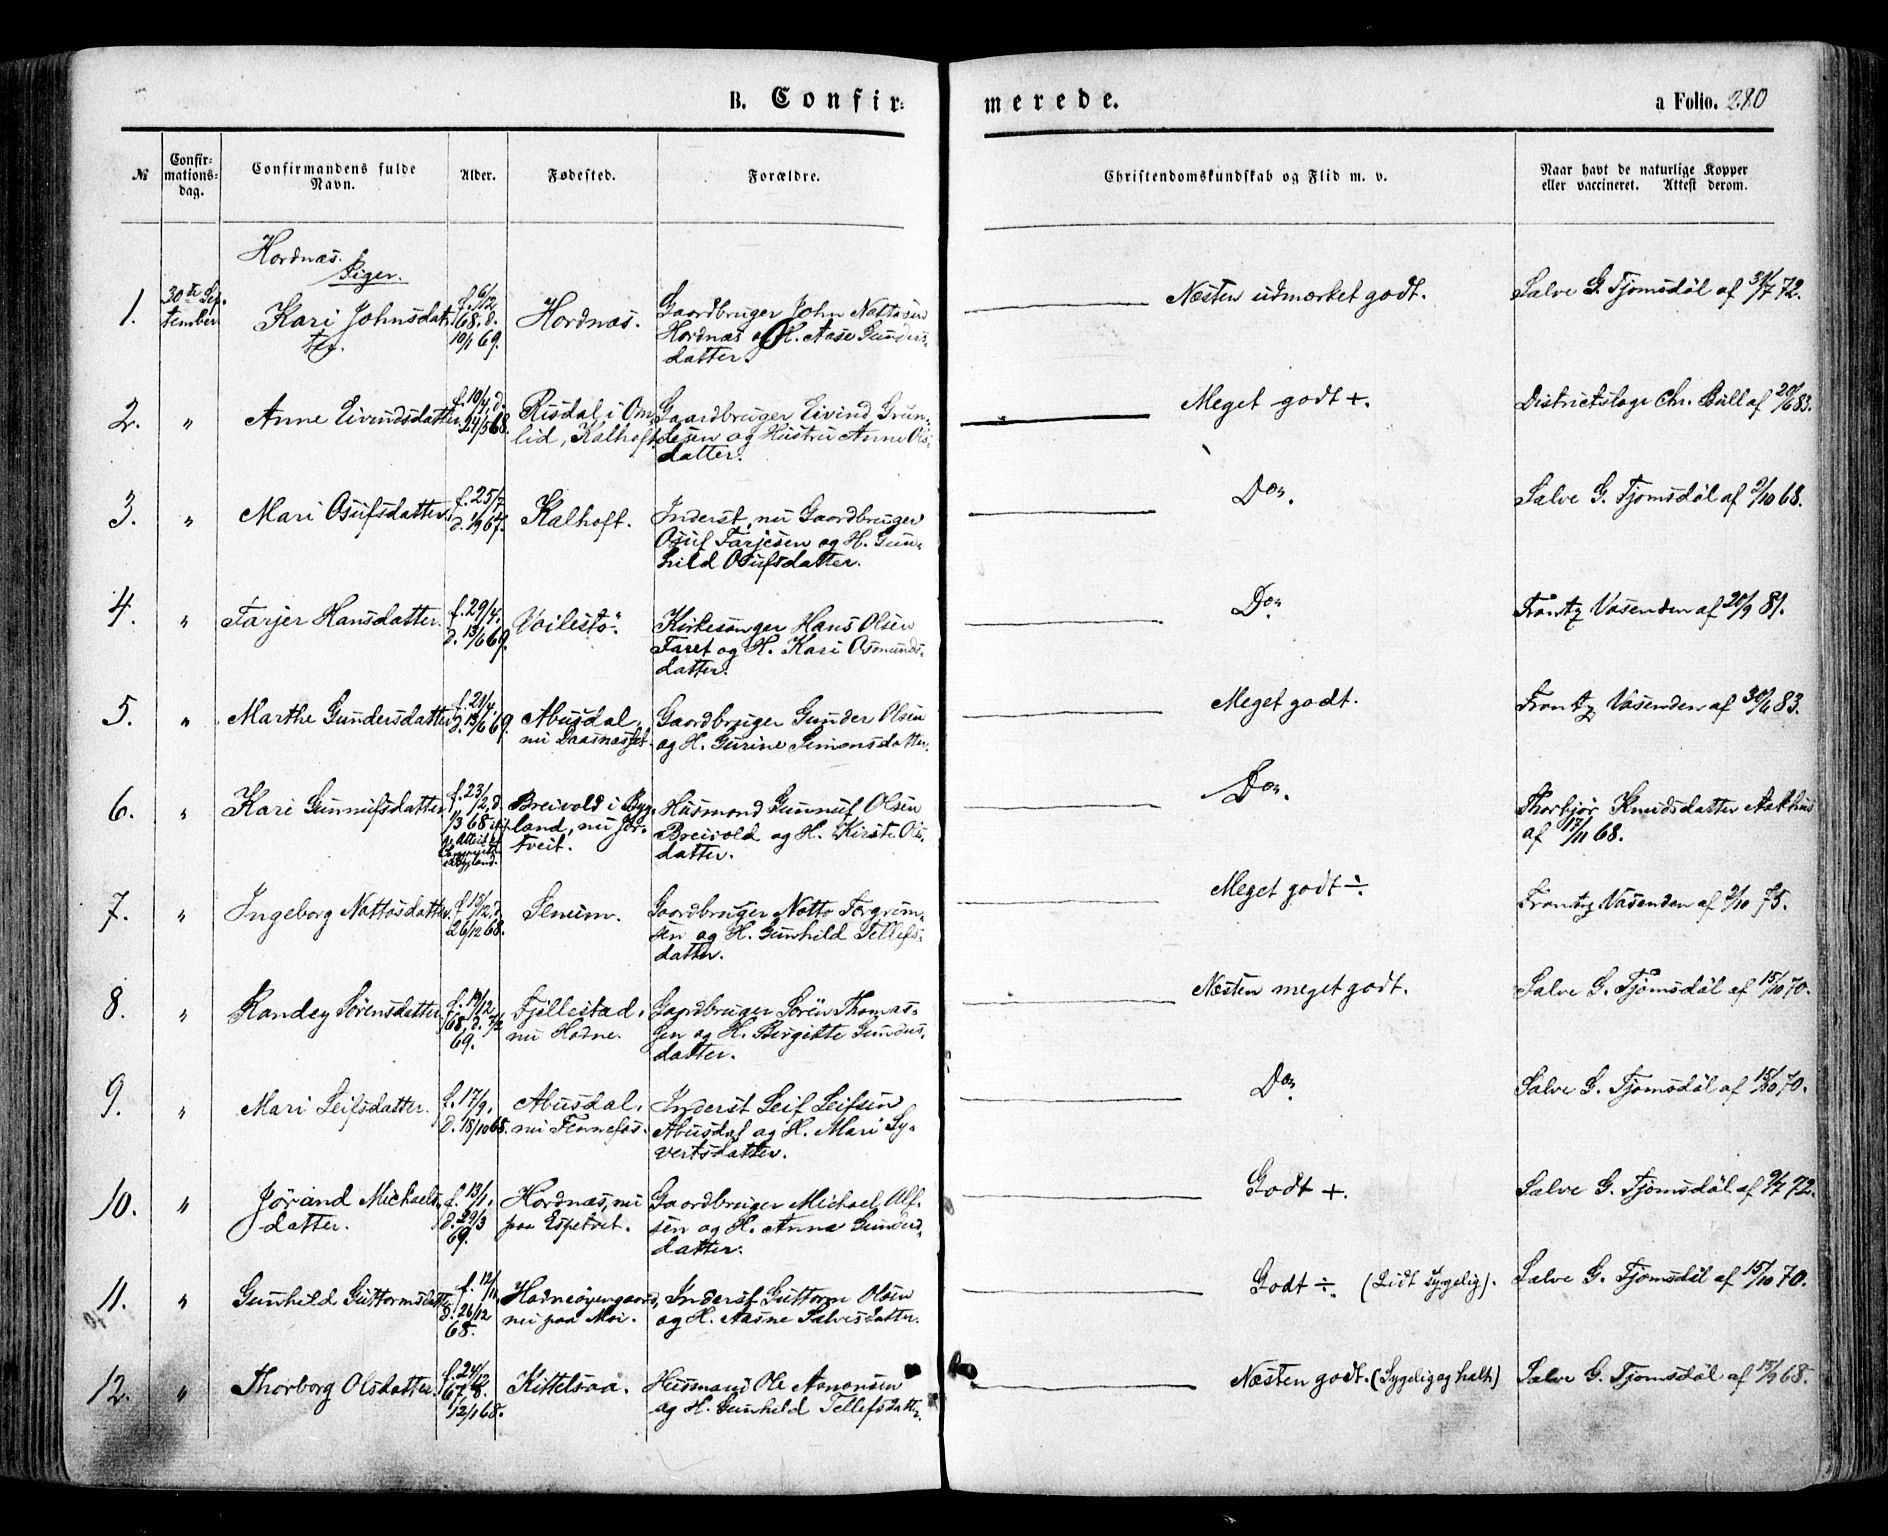 B. Confir= merede. a Folio. 280
№ Confir=
mations=
dag. Confirmandens fulde
Navn. Alder. Fødested. Forældre. Christendomskundskab og Flid m. v. Naar havt de naturlige Kopper
eller vaccineret. Attest derom.
Hordnæs.
Piger.
1. 30te Sep-
tember Kari Johnsdat-
ter. f. 6/12
68. d.
10/1 69. Hordnæs. Gaardbruger John Nottosen
Hordnæs og H. Aase Gunders-
datter. Næsten udmærket godt. Salve G. Tjomsdøl af 31/7 72.
2. " Anne Eivindsdatter. f. 10/4 d.
24/5 68. Risdal i Om-
lid, Kalhoft. Gaardbruger Eivind Grun-
desen og Hustru Anne Ols-
datter. Meget godt +. Districtslæge Chr. Bull af 20/6 83.
3. " Mari Osufsdatter. f. 25/7
d. 1/9 67. Kalhoft. Inderst, nu Gaardbruger
Osuf Tarjesen og H. Gun-
hild Osufsdatter. Do. Salve G. Tjomsdøl af 2/10 68.
4. " Tarjer Hansdatter. f. 29/4.
d. 13/6 69. Voilestø. Kirkesanger Hans Olsen
Faret og H. Kari Osmunds-
datter. Do. Frantz Vasenden af 20/9 81.
5. " Marthe Gundersdatter f. 21/4.
d. 13/6 69. Abusdal,
nu Gaardbruger Gunder Olsen
og H. Gurine Simonsdatter. Meget godt. Frantz Vasenden af 30/6 83.
6. " Kari Gunnufsdatter f. 23/
/2, d.
1/3 68 Breivold i Byg-
land, nu Jor-
tveit. Husmand Gunnuf Olsen
Breivold og H. Kirste Ols-
datter. Do. Thorbjør Knudsdatter Aakhus
af 17/11 68.
7. " Ingeborg Nottosdatter. f. 15/12, d.
26/12 68. Senum. Gaardbruger Notto Torgrim-
sen og H. Gunhild Tellefs-
datter. Meget godt ÷. Frantz Vasenden af 2/10 75.
8. " Randey Sørensdatter. f. 19/12
68, d. 7/2
69. Fjellestad,
nu Hodne. Gaardbruger Søren Thomas-
sen og H. Birgitte Gunders-
datter. Næsten meget godt. Salve G. Tjomsdøl af 15/10 70.
9. " Mari Leifsdatter. f. 17/9,
d. 18/10 68. Abusdal,
nu Fennefos. Inderst Leif Leifsen
Abusdal og H. Mari Sy-
vertsdatter. Do. Salve G. Tjomsdøl af 15/10 70.
10. " Jørand Michaels-
datter. f. 13/1,
d. 29/3
69. Hordnæs, nu
paa Espetvet. Gaardbruger Michael Olf-
sen og H. Anne Gunders-
datter. Godt +. Salve G. Tjomsdøl af 9/7 72.
11. " Gunhild Guttormsdatter f. 12/11,
d. 26/12
68. Hodneøyengaard,
nu paa Moi. Inderst Guttorm Olsen
og H. Aasne Salvesdatter. Godt ÷. (Lidt sygelig). Salve G. Tjomsdøl af 15/10 70.
12. " Thorborg Olsdatter. f. 24/12
67. d.
12/1 68. Kittelsaa. Husmand Ole Aanonsen
og H. Gunhild Tellefsdatter. Næsten godt. (Sygelig og halt) Salve G. Tjomsdøl af 15/9 68.